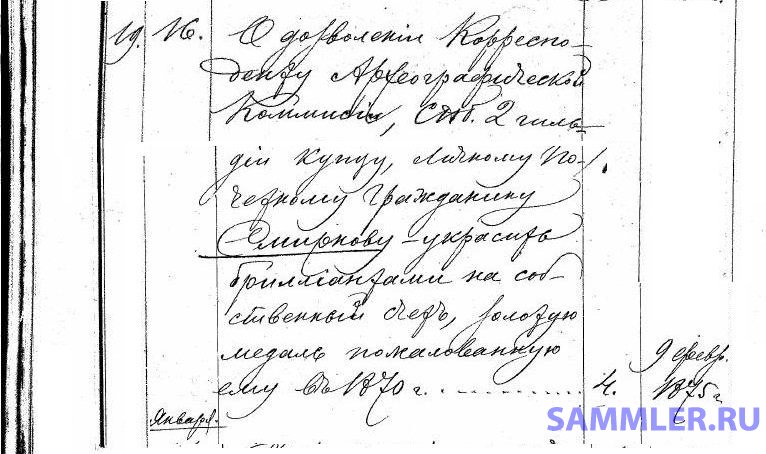 19. 16. О дозволенiи Корреспо-
денту Археографической
Коммисiи, СПб. 2 гиль-
дiи купцу, личному по-
четному гражданину
Смирнову - украсить
бриллiантами на соб-
ственный счетъ, золотую
медаль пожалованную
ему въ 1870 г. .......... 4. 9 февр.
1875 г.
Января.
SAMMLER.RU